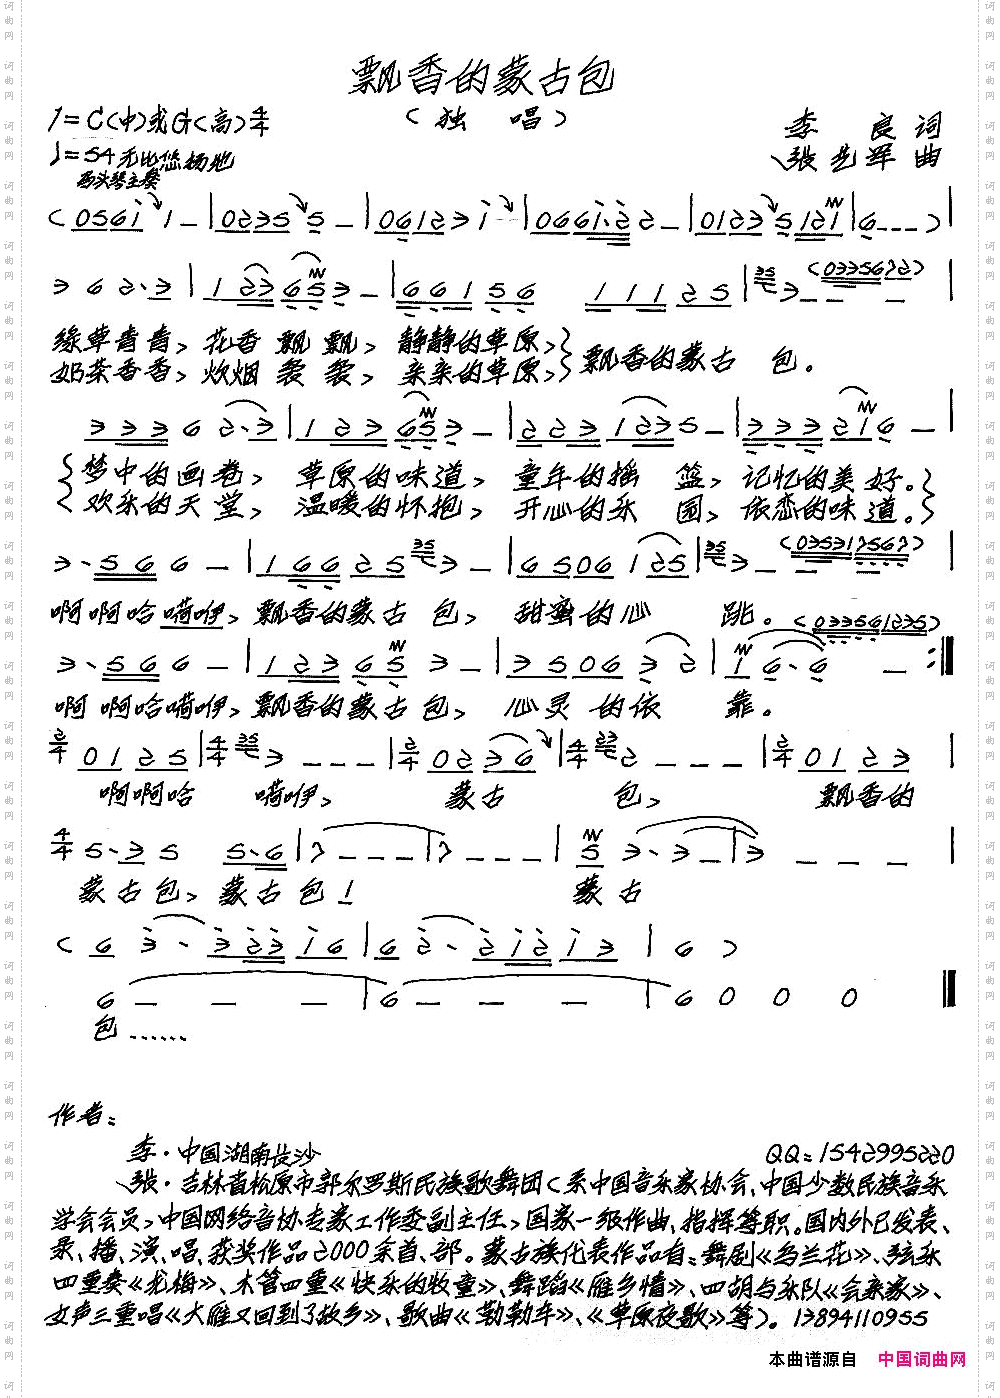 飘香的蒙古包
1=C(中)或G(高) 4/4
(独 唱)
李 良 词
♩=54 无比悠扬地
张艺军 曲
马头琴主奏
(0561 1 - | 0235 5 - | 06123 1 | 0661·2 2 - | 0123 5 121 | 6 - - - ) |
3 6 2·3 | 1 23 65 3 - | 6 6 1 5 6 1 1 1 2 5 | 35 3 - - (0335672) - |
绿草青青、花香飘飘、静静的草原、
飘香的蒙古 包。
奶茶香香、炊烟袅袅、亲亲的草原、
3 3 3 6 2·3 | 1 2 3 65 3 - | 2 2 3 1 23 5 - | 3 3 3 21 6 - |
梦中的画卷、 草原的味道、 童年的摇 篮、记忆的美好。
欢乐的天堂、 温暖的怀抱、 开心的乐 园、依恋的味道。
3·5 6 6 - | 1 6 6 2 5 35 3 - | 6 5 06 1 25 | 35 3 - (035317567) - |
啊啊哈嗬咿、飘香的蒙古 包、 甜蜜的心 跳。 (033561235)
3·5 6 6 - | 1 2 3 6 5 3 - | 3 5 06 3 2 | 1 6·6 - :|
啊 啊哈嗬咿、飘香的蒙古包、 心灵 的依 靠。
2/4 0 1 2 5 | 4/4 35 3 - - - | 2/4 0 2 3 6 | 4/4 23 2 - - - | 2/4 0 1 2 3 |
啊啊哈 嗬咿、 蒙古 包、 飘香的
4/4 5·3 5 5·6 | 7 - - - | 7 - - - | 5 3·3 - | 3 - - - |
蒙古包、蒙古包! 蒙古
( 6 3 · 3 2 3 1 6 | 6 2 · 2 1 2 1 3 | 6 )
6 - - - | 6 - - - | 6 0 0 0
包……
作者:
李·中国湖南长沙
QQ:1542995220
张·吉林省松原市郭尔罗斯民族歌舞团(系中国音乐家协会、中国少数民族音乐
学会会员、中国网络音协专家工作委副主任、国家一级作曲、指挥等职。国内外已发表、
录、播、演、唱、获奖作品2000余首、部。蒙古族代表作品有:舞剧《乌兰花》、弦乐
四重奏《龙梅》、木管四重《快乐的牧童》、舞蹈《雁乡情》、四胡与乐队《会亲家》、
女声三重唱《大雁又回到了故乡》、歌曲《勒勒车》、《草原夜歌》等)。13894110955
本曲谱源自 中国词曲网